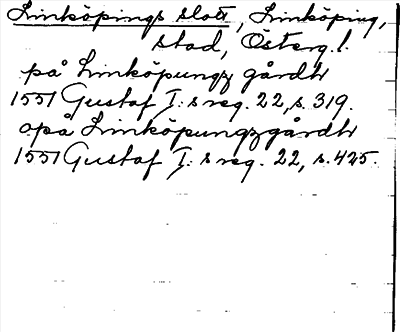 Linköpings slott, Linköping,
stad, Österg. l.
på Linköpungz gårdh
1551 Gustaf I:s reg. 22, s. 319.
opå Linköpungzgårdh
1551 Gustaf I:s reg. 22, s. 425.